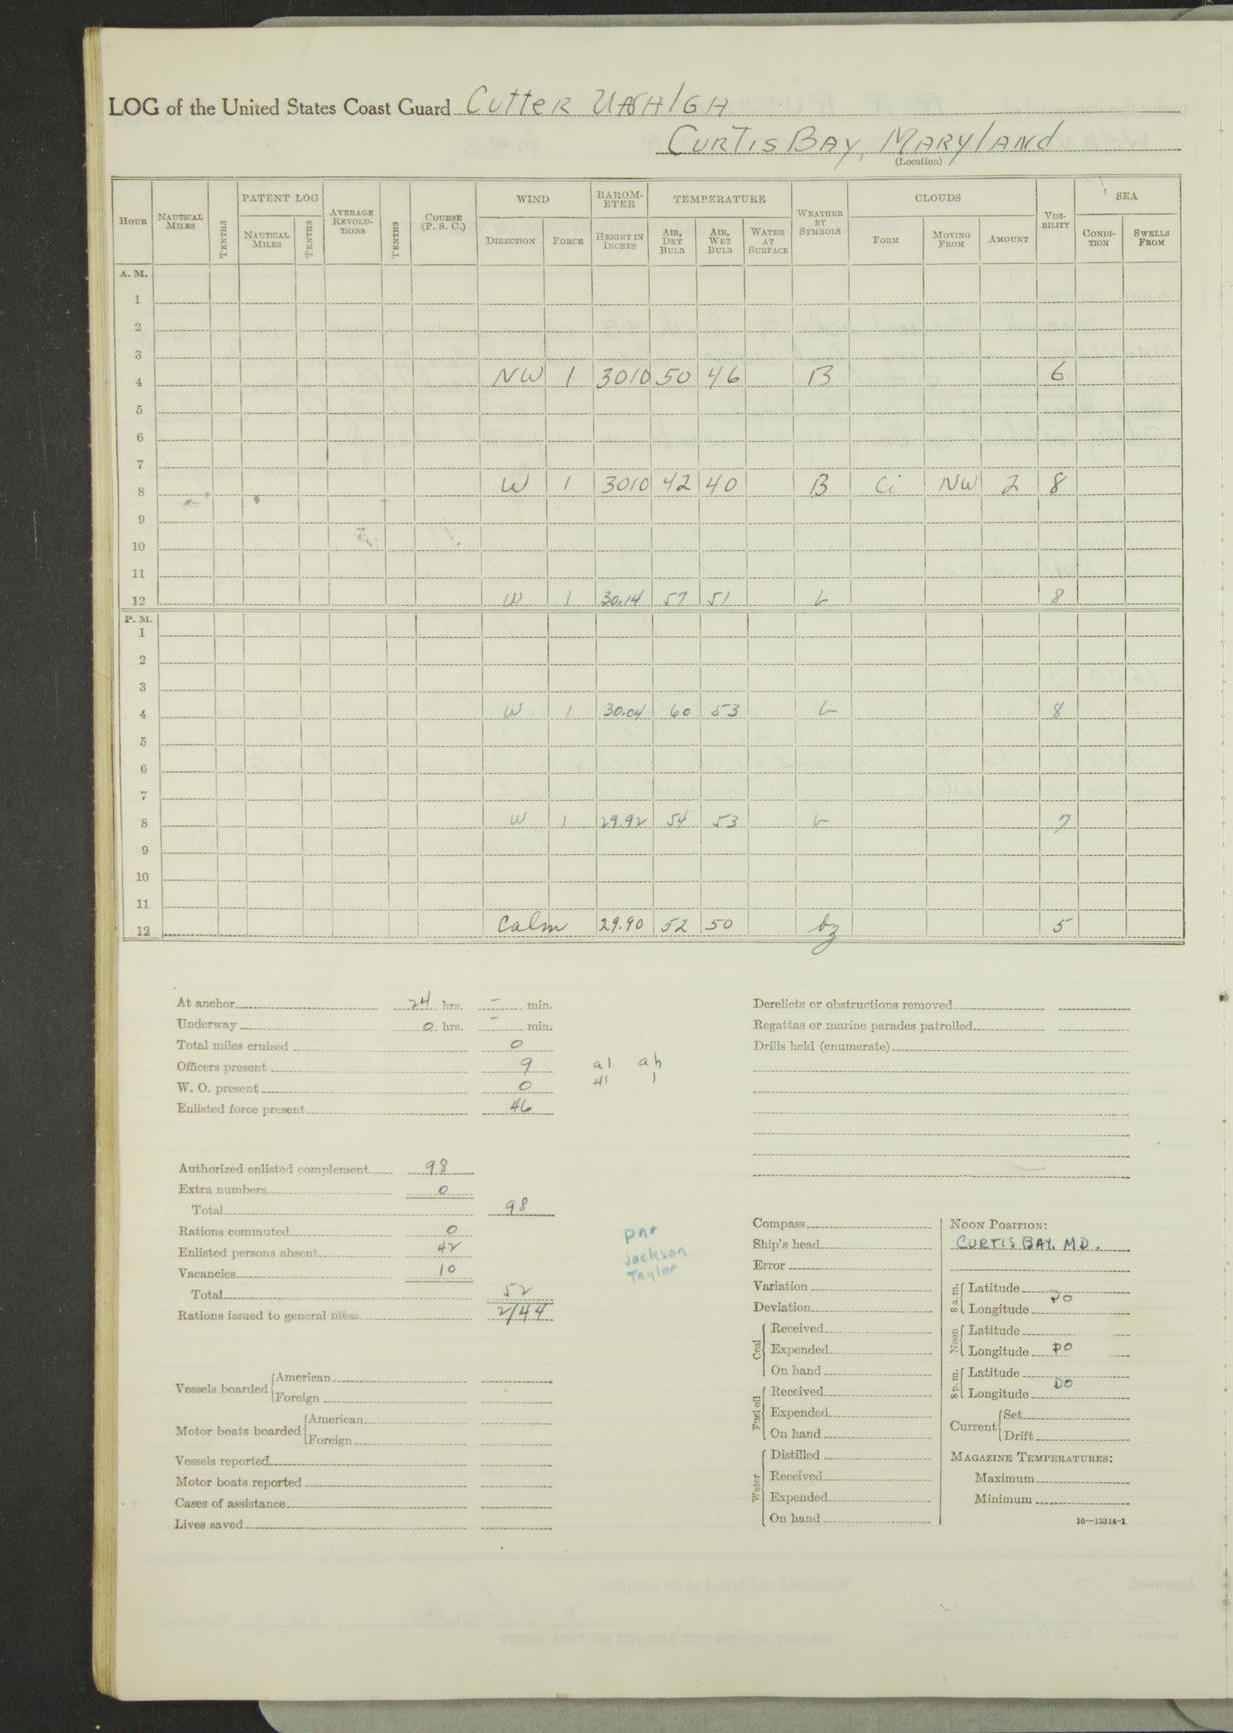 LOG of the United States Coast Guard Cutter UNALGA
CURTIS BAY, MARYLAND
(Location)
HOUR NAUTICAL MILES TENTHS PATENT LOG NAUTICAL MILES TENTHS AVERAGE REVOLU-TIONS TENTHS COURSE (P. S. C.) WIND DIRECTION FORCE BAROM-ETER HEIGHT IN INCHES TEMPERATURE AIR, DRY BULB AIR, WET BULB WATER AT SURFACE WEATHER BY SYMBOLS CLOUDS FORM MOVING FROM AMOUNT VISI-BILITY SEA CONDI-TION SWELLS FROM
A. M.
1
2
3
4 NW 1 3010 50 46 B 6
5
6
7
8 W 1 3010 42 40 B Ci NW 2 8
9
10
11
12 W 1 30.14 57 51 b 8
P. M.
1
2
3
4 W 1 30.04 60 53 b 8
5
6
7
8 W 1 29.92 54 53 b 7
9
10
11
12 Calm 29.90 52 50 bz 5
At anchor 24 hrs. - min.
Underway 0 hrs. - min.
Total miles cruised 0
Officers present 9 al ah
W. O. present 0 41 1
Enlisted force present 46
Authorized enlisted complement 98
Extra numbers 0
Total 98
Rations commuted 0
Enlisted persons absent 42
Vacancies 10
Total 52
Rations issued to general mess 2/44
pnr
Jackson
Taylor
Vessels boarded American
Foreign
Motor boats boarded American
Foreign
Vessels reported
Motor boats reported
Cases of assistance
Lives saved
Derelicts or obstructions removed
Regattas or marine parades patrolled
Drills held (enumerate)
Compass
Ship's head
Error
Variation
Deviation
Coal Received
Expended
On hand
Fuel oil Received
Expended
On hand
Water Distilled
Received
Expended
On hand
NOON POSITION:
CURTIS BAY. MD.
8 a.m. Latitude
DO
Longitude
Noon Latitude
Longitude DO
8 p.m. Latitude
DO
Longitude
Current Set
Drift
MAGAZINE TEMPERATURES:
Maximum
Minimum
16—13314-1